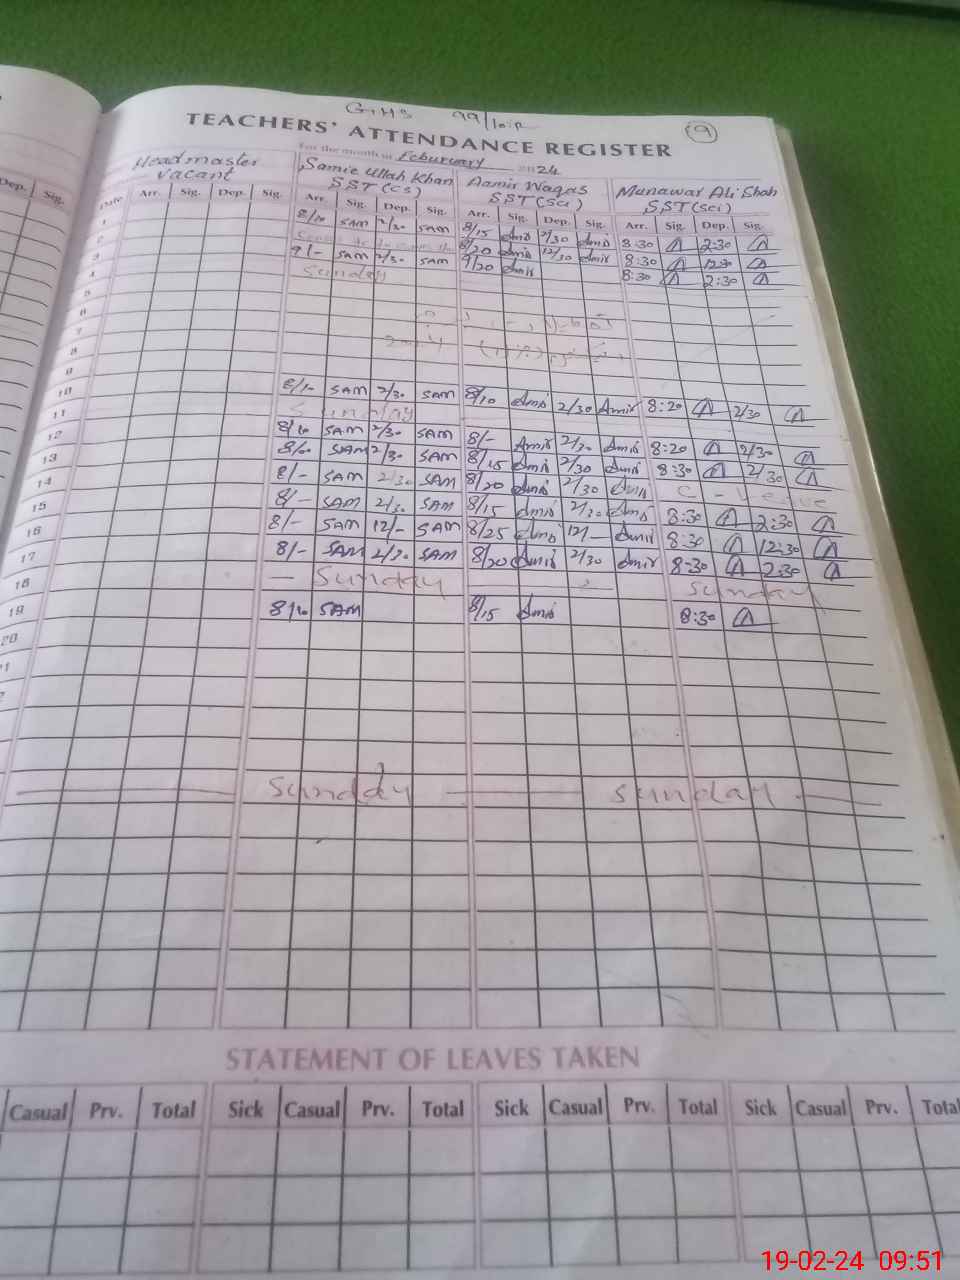 G.HS 99/10.R
19
TEACHERS' ATTENDANCE REGISTER
For the month of Feburuary 2024
Headmaster Samie Ullah Khan Aamir Waqas Munawar Ali Shah
Vacant SST (CS) SST (Sci) SST (Sci)
Dep. Sig. Date Arr. Sig. Dep. Sig. Arr. Sig. Dep. Sig. Arr. Sig. Dep. Sig. Arr. Sig. Dep. Sig.
1 8/10 SAM 2/30 SAM 8/15 Amir 2/30 Amir 8:30 2:30
2 8/20 Amir 12/30 Amir 8:30 12:30
3 9/- SAM 2/30 SAM 9/20 Amir 8:30 2:30
4 Sunday
5
6
7
8
9
10 8/10 SAM 2/30 SAM 8/10 Amir 2/30 Amir 8:20 2/30
11 Sunday
12 8/10 SAM 2/30 SAM 8/- Amir 2/30 Amir 8:20 2/30
13 SAM 2/30 SAM 8/15 Amir 2/30 Amir 8:30 2/30
14 8/- SAM 2/30 SAM 8/20 Amir 2/30 Amir C - Leave
15 8/- SAM 2/30 SAM 8/15 Amir 2/30 Amir 8:30 2:30
16 8/- SAM 12/- SAM 8/25 Amir 12/- Amir 8:30 12:30
17 8/- SAM 2/30 SAM 8/20 Amir 2/30 Amir 8:30 2:30
18 — Sunday Sunday
19 8/10 SAM 8/15 Amir 8:30
20
Sunday Sunday
STATEMENT OF LEAVES TAKEN
Casual Prv. Total Sick Casual Prv. Total Sick Casual Prv. Total Sick Casual Prv. Total
19-02-24 09:51